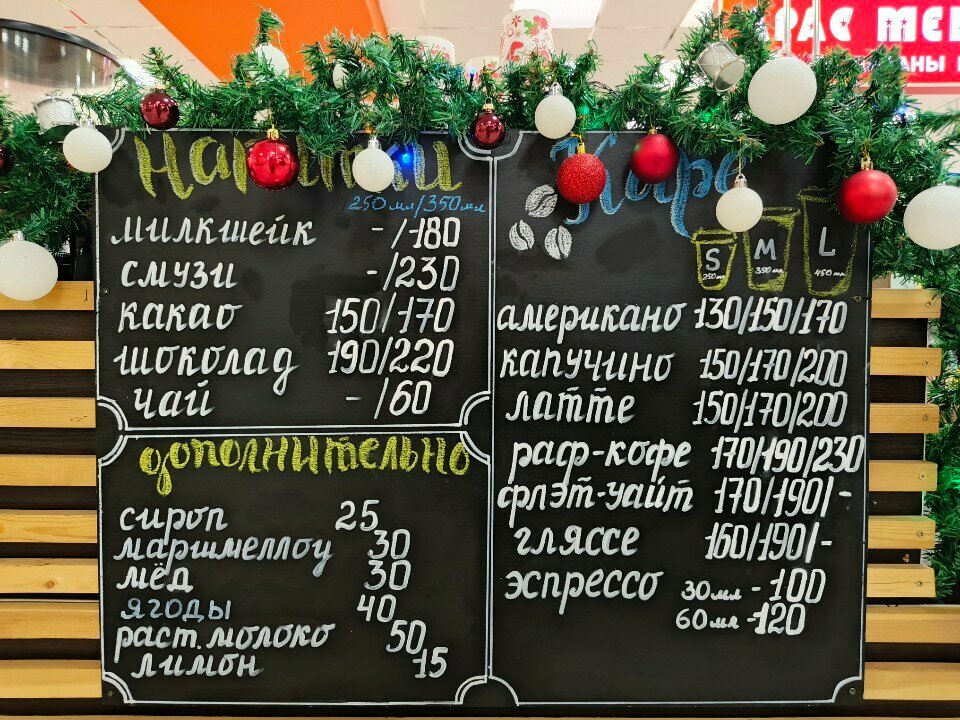 Напитки
250 мл/350 мл
милкшейк -/180
смузи -/230
какао 150/170
шоколад 190/220
чай -/60
дополнительно
сироп 25
маршмеллоу 30
мёд 30
ягоды 40
раст. молоко 50
лимон 15
Кофе
S M L
250 мл 350 мл 450 мл
американо 130/150/170
капучино 150/170/200
латте 150/170/200
раф-кофе 170/190/230
флэт-уайт 170/190/-
гляссе 160/190/-
эспрессо 30 мл - 100
60 мл - 120